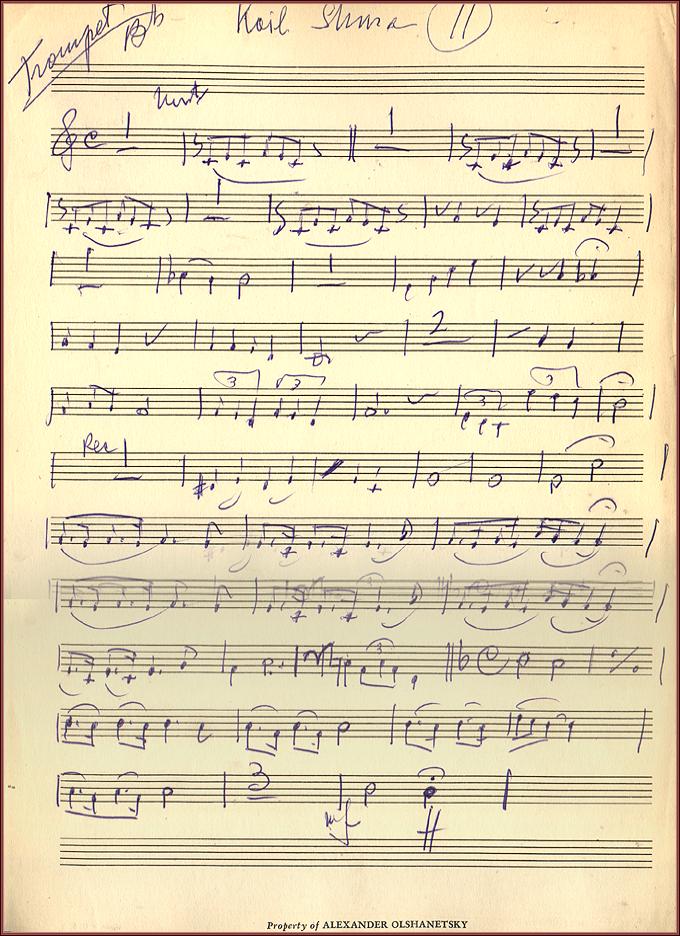 Trumpet Bb
11
1
1
1
1
1
1
2
3 3
3 3
Rec 1
3
3
mf
Property of ALEXANDER OLSHANETSKY